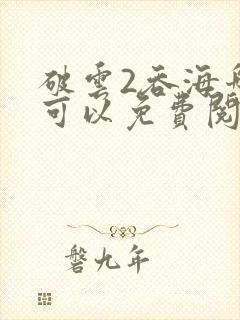 破雲2吞海
可以免費閱
磐九年